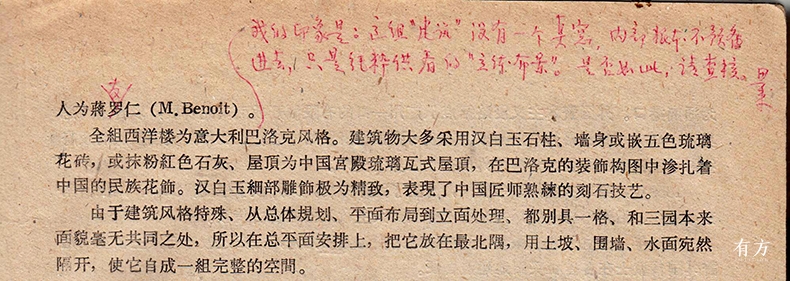 我的印象是：这组"建筑"没有一个真窗，内部根本不预备
进去，只是纯粹供看的"立体布景"。是否如此，请查核。思成
友
人为蔣罗仁（M.Benoit）。
全組西洋楼为意大利巴洛克风格。建筑物大多采用汉白玉石柱、墙身或嵌五色琉璃
花砖，或抹粉紅色石灰、屋頂为中国宮殿琉璃瓦式屋頂，在巴洛克的装飾构图中渗扎着
中国的民族花飾。汉白玉細部雕飾极为精致，表現了中国匠师熟練的刻石技艺。
由于建筑风格特殊、从总体規划、平面布局到立面处理、都别具一格、和三园本来
面貌毫无共同之处，所以在总平面安排上，把它放在最北隅，用土坡、围墙、水面宛然
隔开，使它自成一組完整的空間。
有方